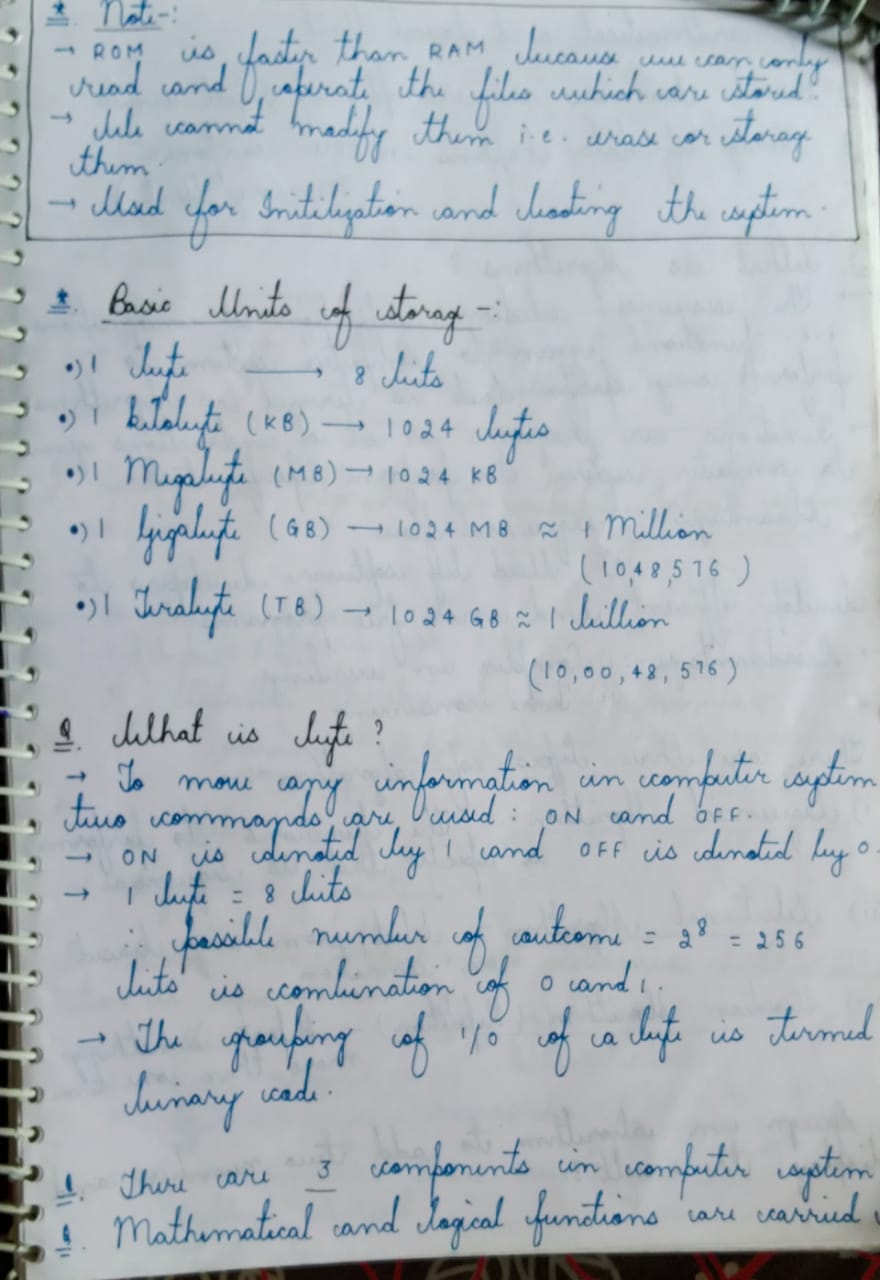 * Note-:
→ ROM is faster than RAM because we can only
read and operate the files which are stored.
→ We cannot modify them i.e. erase or storage
them.
→ Used for Initilization and booting the system.
* Basic Units of storage -:
•) 1 byte ⟶ 8 bits
•) 1 kilobyte (KB) → 1024 bytes
•) 1 Megabyte (MB) → 1024 KB
•) 1 Gigabyte (GB) → 1024 MB ≈ 1 Million
(10,48,576)
•) 1 Terabyte (TB) → 1024 GB ≈ 1 billion
(10,00,48,576)
Q. What is byte?
→ To move any information in computer system
two commands are used : ON and OFF.
→ ON is denoted by 1 and OFF is denoted by 0.
→ 1 byte = 8 bits
∴ possible number of outcome = 2⁸ = 256
bits is combination of 0 and 1.
→ The grouping of 1/0 of a byte is termed
binary code.
Q. There are 3 components in computer system
Q. Mathematical and logical functions are carried